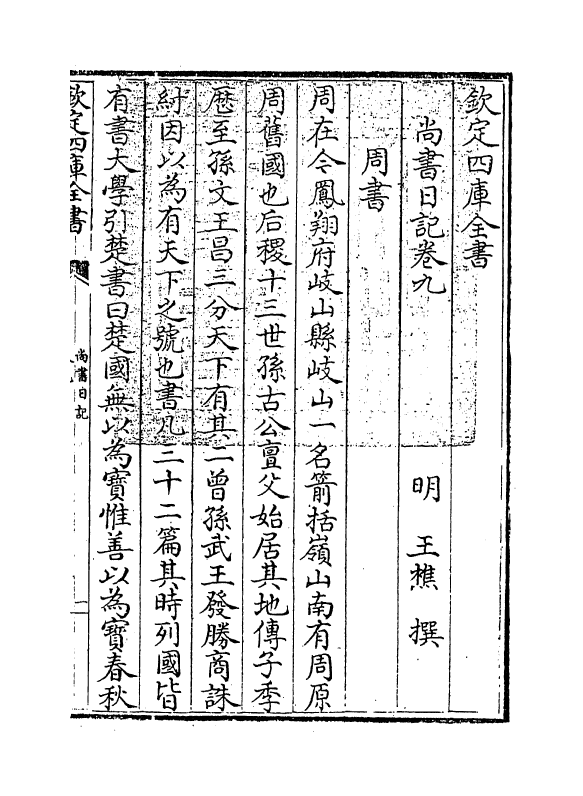 欽定四庫全書
尚書日記卷九
明 王樵 撰
周書
周在今鳳翔府岐山縣岐山一名箭括嶺山南有周原
周舊國也后稷十三世孫古公亶父始居其地傳子季
歷至孫文王昌三分天下有其二曾孫武王發勝商誅
紂因以為有天下之號也書凡三十二篇其時列國皆
有書大學引楚書曰楚國無以為寶惟善以為寶春秋
欽定四庫全書
尚書日記
一